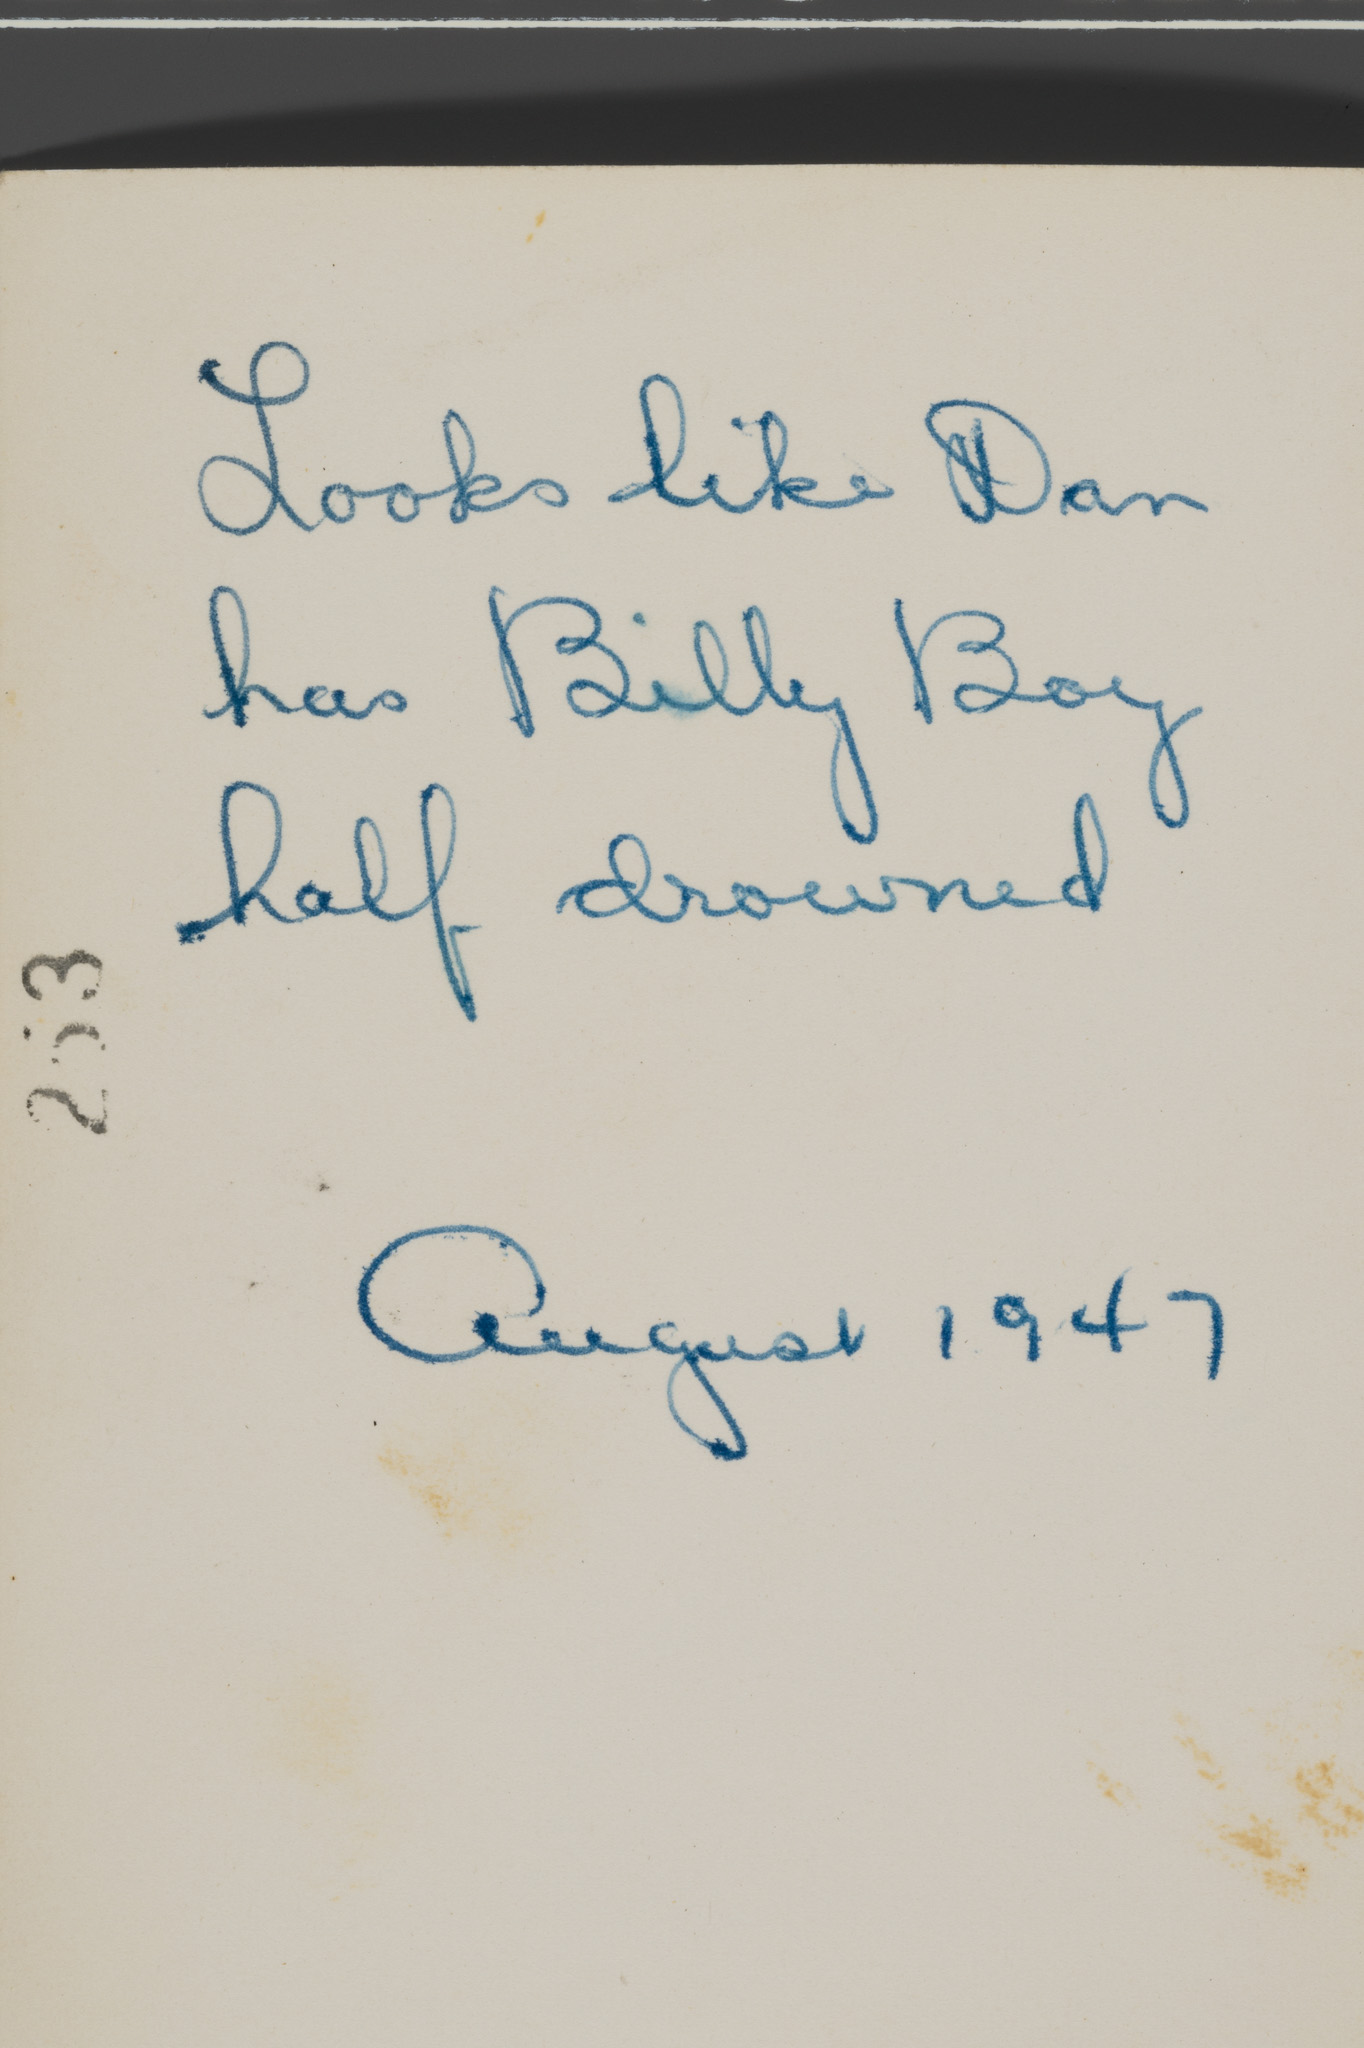 Looks like Dan
has Billy Boy
half drowned
253
August 1947